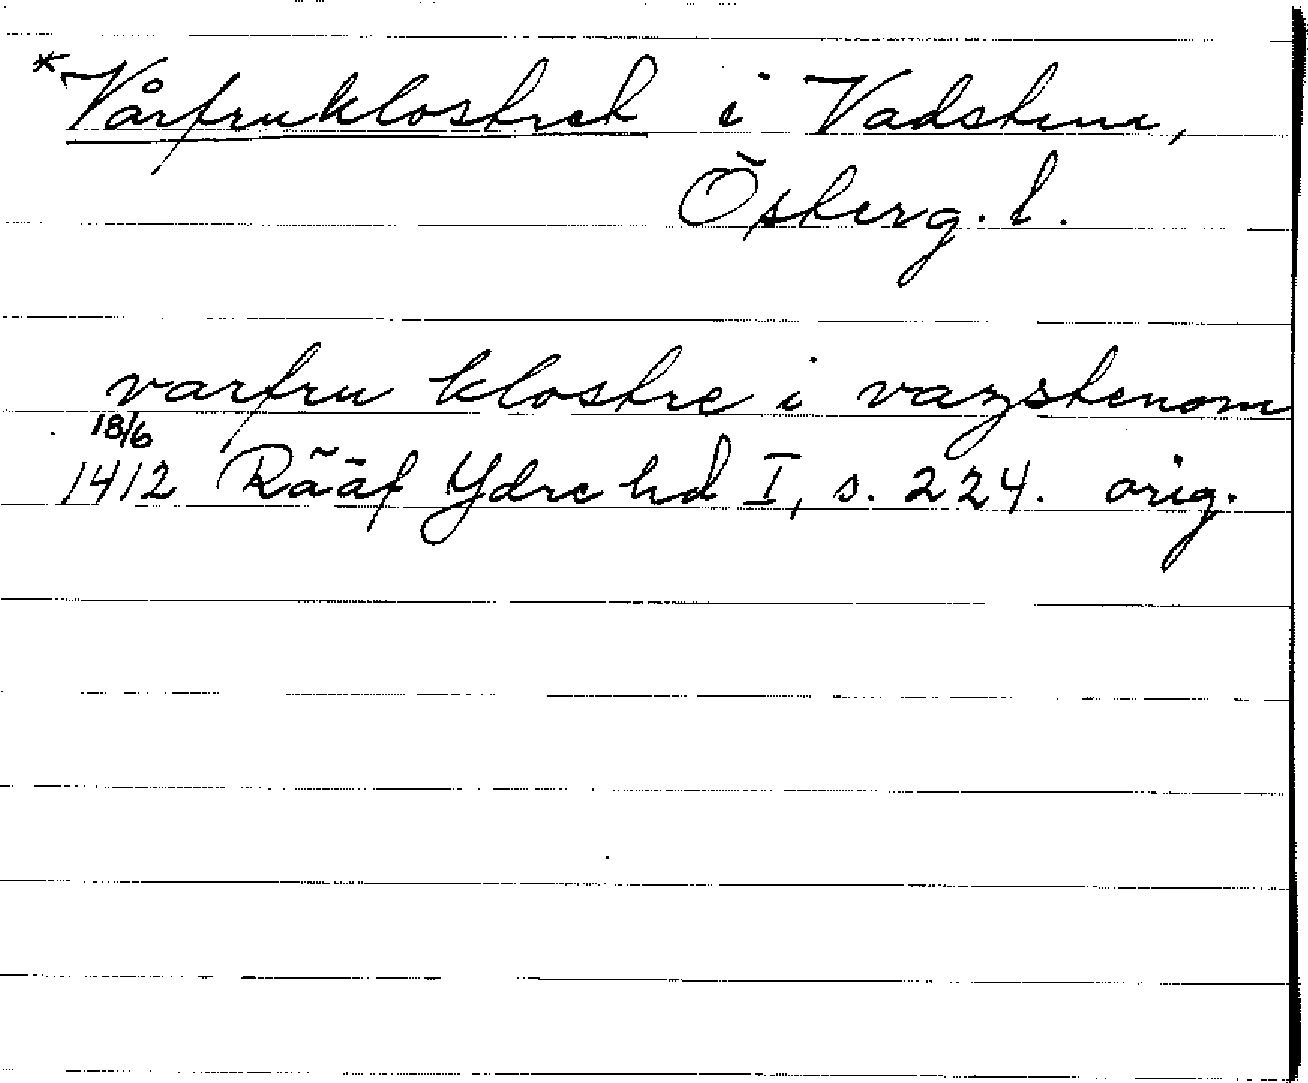 *Vårfruklostret i Vadstena,
Österg. l.
varfru klostre i vazstenom
18/6
1412 Rääf Ydre hd I, s. 224. orig.